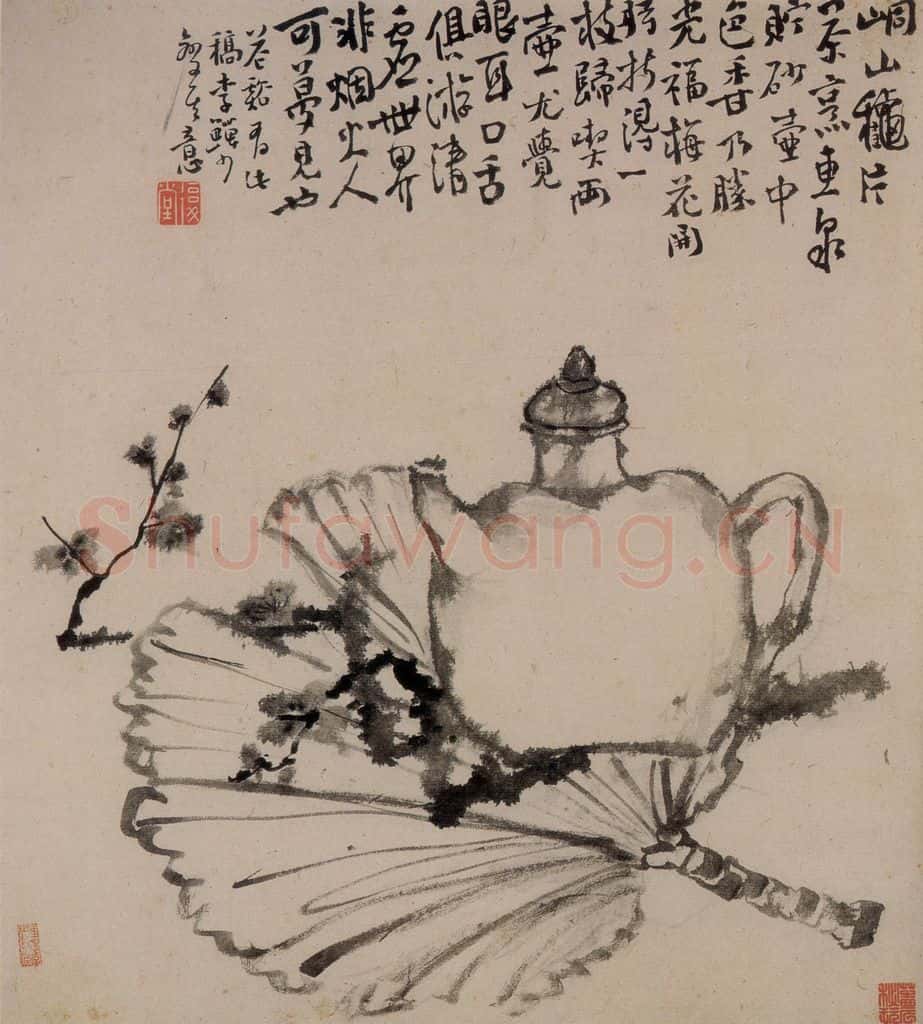 峒山龝片
茶烹惠泉
貯砂壺中
色香乃勝
光福梅花開
時折得一
枝歸喫兩
壺尤覺
眼耳口舌
俱游清
虛世界
非烟火人
可夢見也
苕谿有此
稿李鱓少
變其意
Shufawang.CN